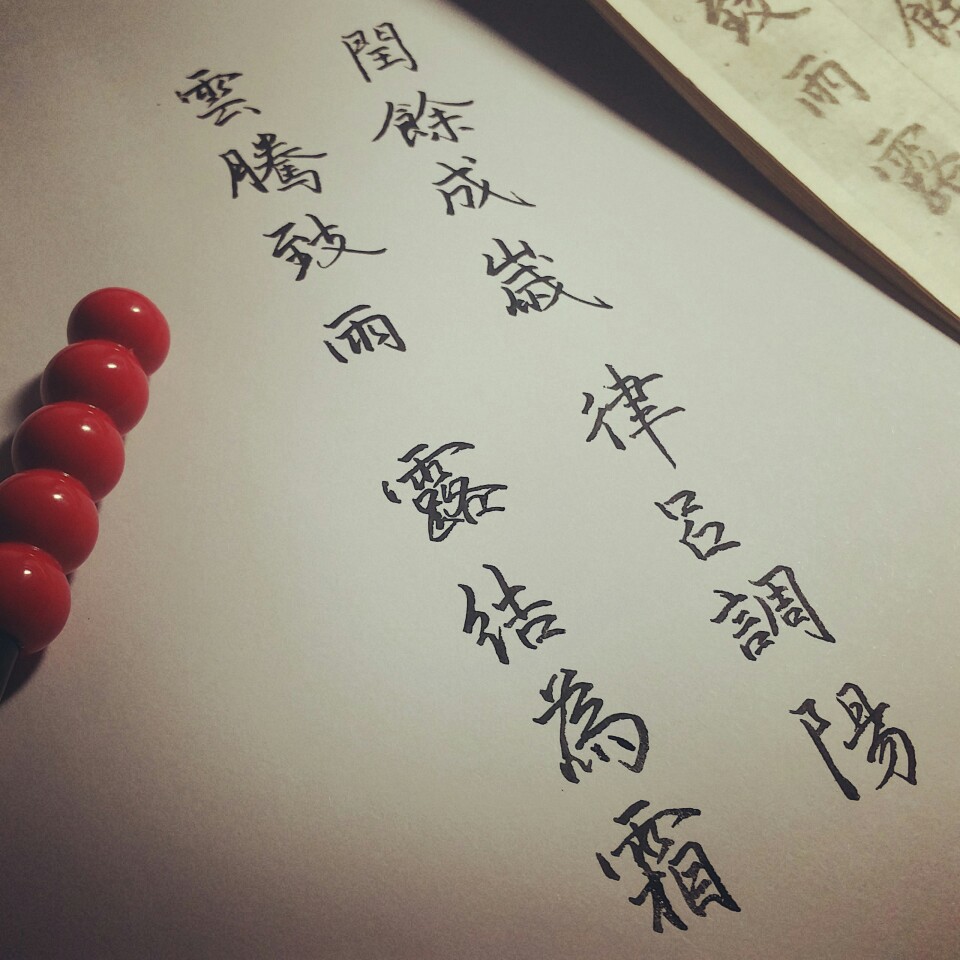 閏餘成歲 律呂調陽
雲騰致雨 露結為霜
致雨露